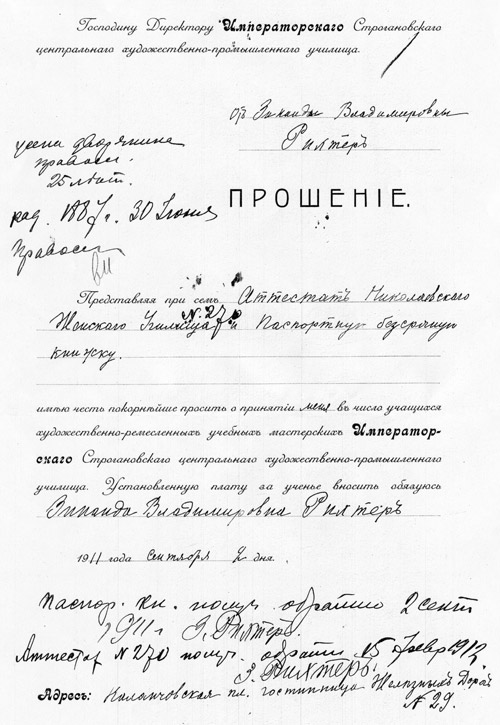 Господину Директору Императорскаго Строгановскаго
центральнаго художественно-промышленнаго училища.
отъ Зинаиды Владимировны
Рихтеръ
дворянина
правосл.
25 лѣт.
род. 1887 г. 30 Іюня
Правосл.
ПРОШЕНІЕ.
Представляя при семъ Аттестатъ Николаевскаго
Женскаго Училища № 270 и Паспортную безсрочную
книжку.
имѣю честь покорнѣйше просить о принятіи меня въ число учащихся
художественно-ремесленныхъ учебныхъ мастерскихъ Император-
скаго Строгановскаго центральнаго художественно-промышленнаго
училища. Установленную плату за ученье вносить обязуюсь
Зинаида Владимировна Рихтеръ
1911 года сентября 2 дня.
Паспор. кн. получ. обратно 2 сент
1911 г. З. Рихтеръ
Аттестат N 270 получ. обратн 15 Февр 1912
З. Рихтеръ.
Адресъ: Каланчовская пл. гостинница Желѣзныхъ Дорогъ
N 29.